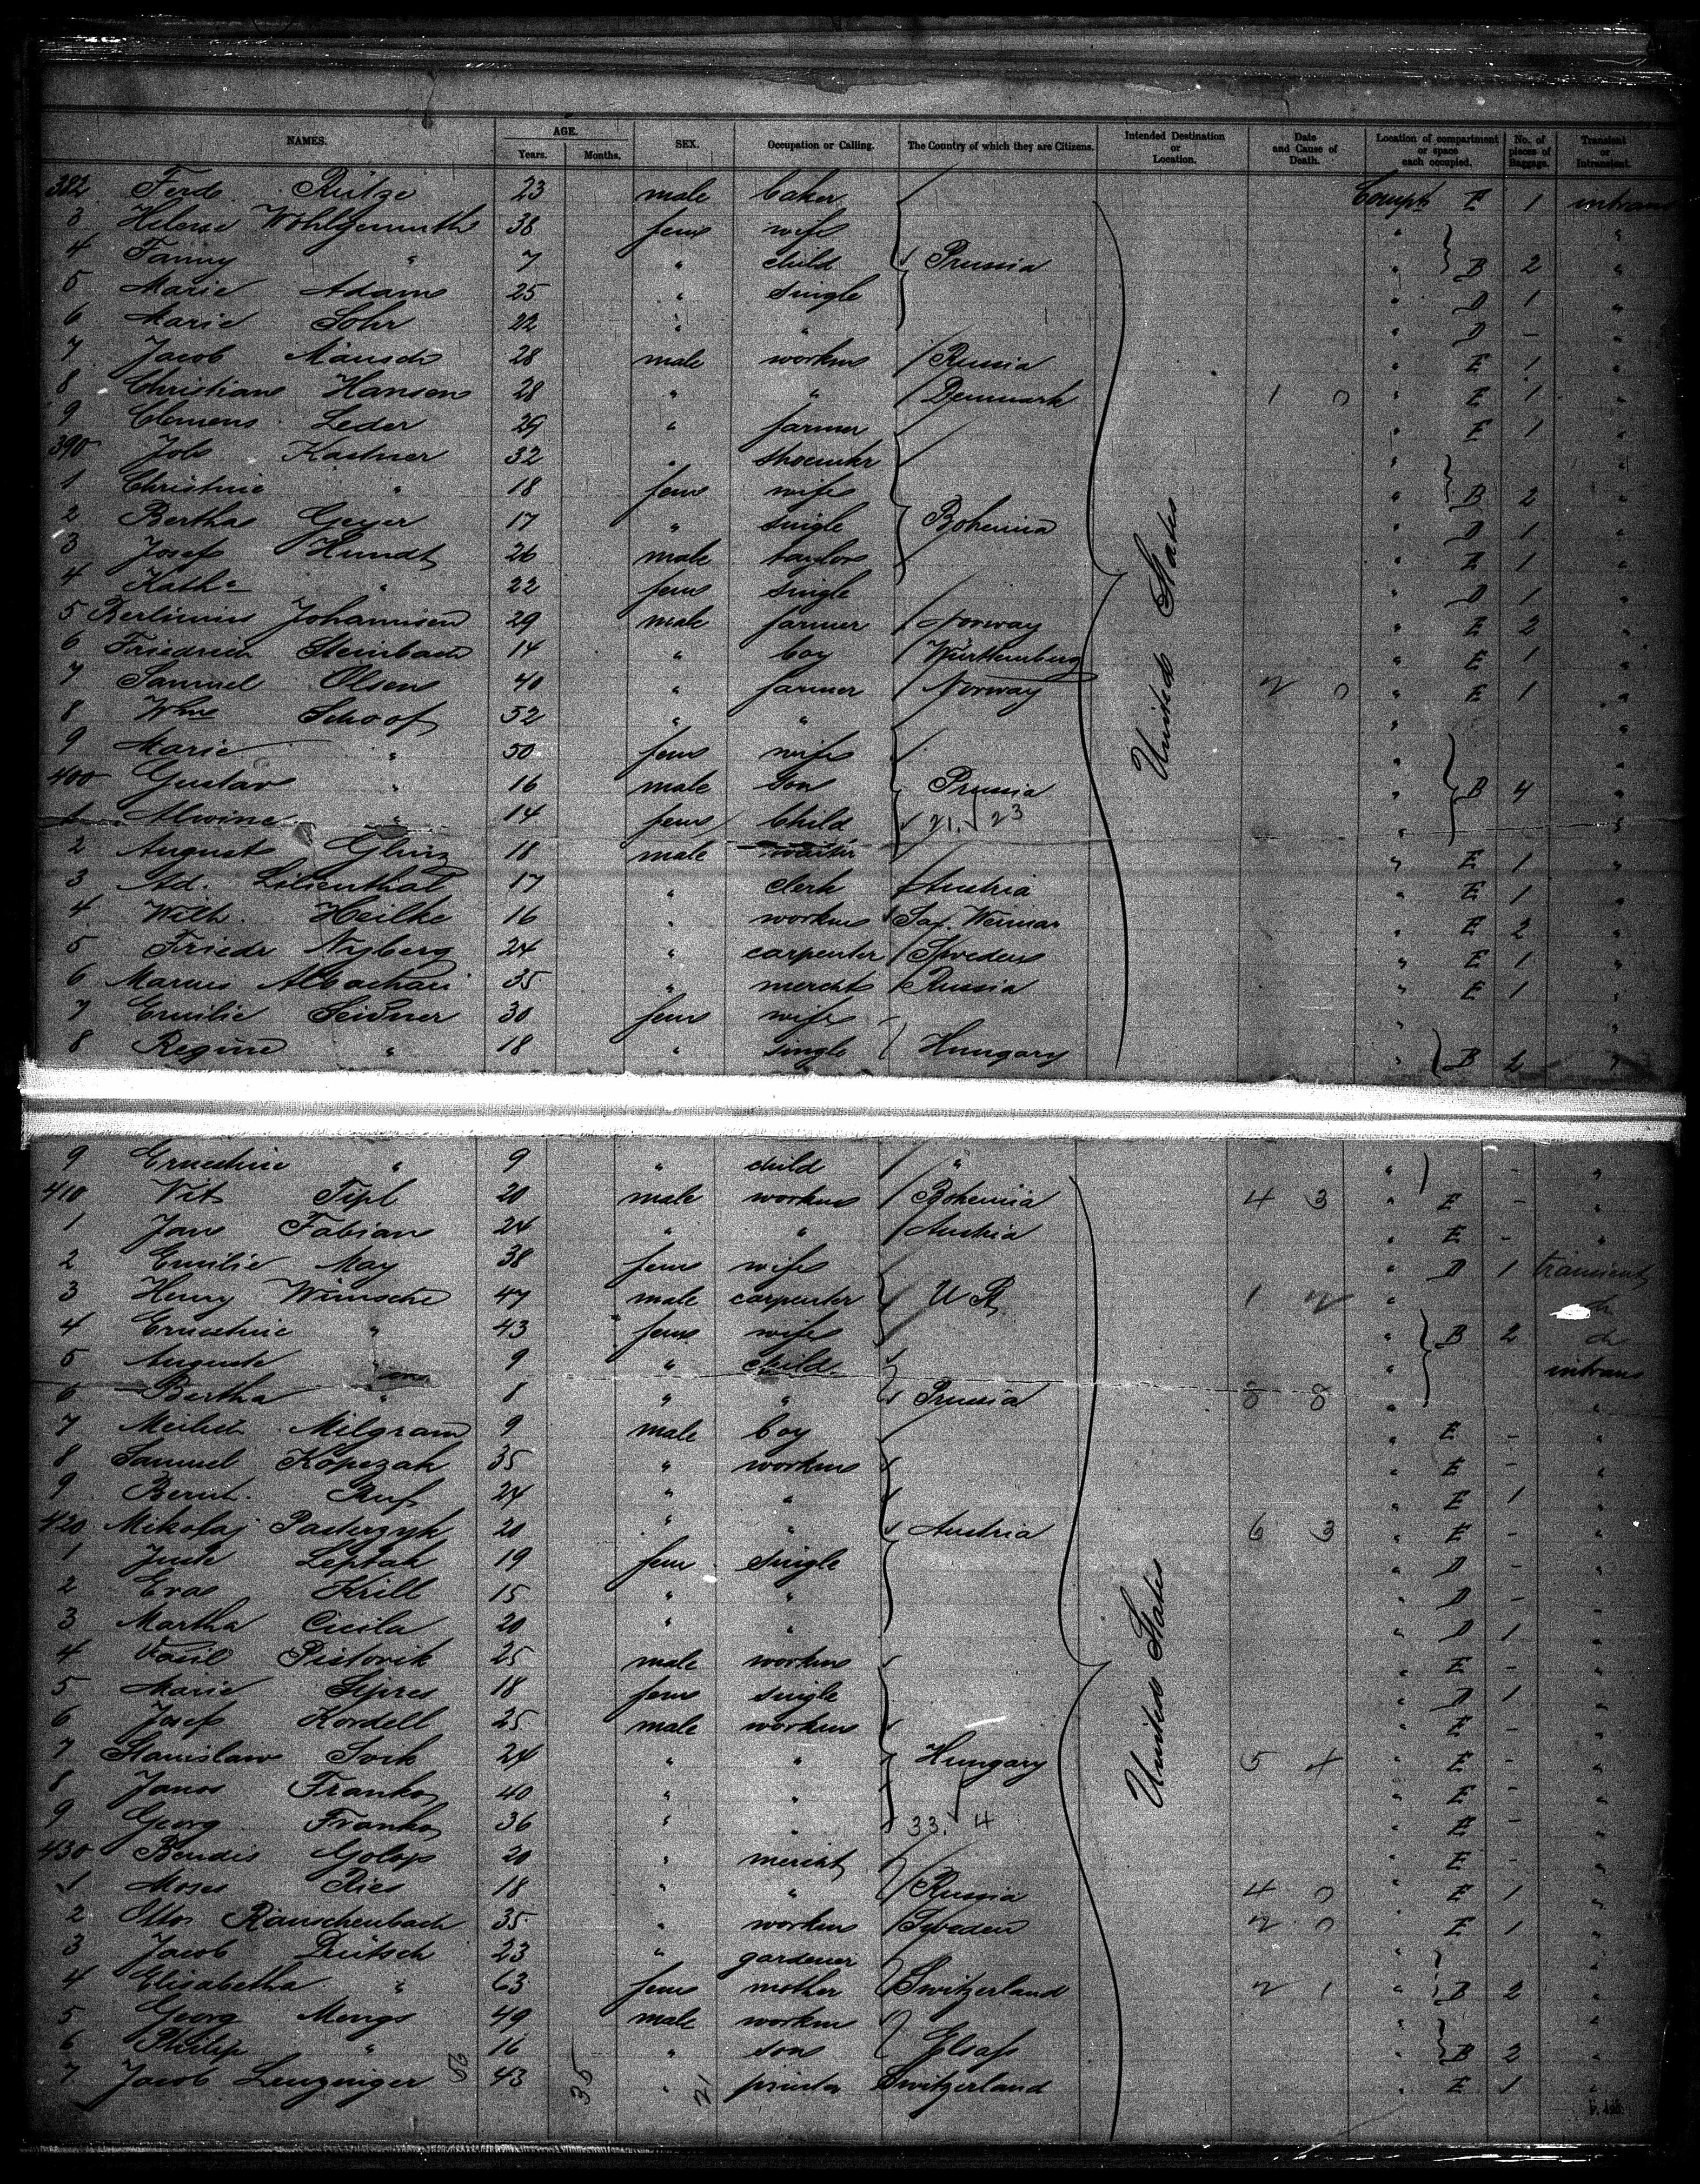 NAMES. AGE. Years. Months. SEX. Occupation or Calling. The Country of which they are Citizens. Intended Destination or Location. Date and Cause of Death. Location of compartment or space each occupied. No. of pieces of Baggage. Transient or Intransient.
382 Ferd. Rütze 23 male baker Compt E 1 intrans
3 Helene Wohlgemuth 38 fem wife "
4 Fanny " 7 " child Prussia " B 2 "
5 Marie Adam 25 " single " D 1 "
6 Marie Sohr 22 " " " D - "
7 Jacob Mänsch 28 male workm Russia " E 1 "
8 Christian Hansen 28 " " Denmark 1 0 " E 1 "
9 Clemens Leder 29 " farmer " E 1 "
390 Joh Kastner 32 " shoemkr " "
1 Christine " 18 fem wife " B 2 "
2 Bertha Geyer 17 " single Bohemia " D 1 "
3 Josef Hundt 26 male taylor " E 1 "
4 Kath. " 22 fem single " D 1 "
5 Johannisen 29 male farmer Norway " E 2 "
6 Friedrich Steinbach 14 " boy Württemberg " E 1 "
7 Samuel Olsen 40 " farmer Norway 2 0 " E 1 "
8 Wm Schoof 52 " " " "
9 Marie " 50 fem wife " "
400 Gustav " 16 male son Prussia " B 4 "
1 Alwine " 14 fem child 21. 23 " "
2 August Glinz 18 male " E 1 "
3 Ad. Lilienthal 17 " clerk Austria " E 1 "
4 Wilh. Heilke 16 " workm Sax. Weimar " E 2 "
5 Friedr Nyberg 24 " carpenter Sweden " E 1 "
6 Marcus 35 " mercht Russia " E 1 "
7 Emilie Seidner 30 fem wife " "
8 Regine " 18 " single Hungary " B 2 "
United States
9 Ernestine " 9 " child " " - "
410 Vit Tipl 20 male workm Bohemia 4 3 " E - "
1 Jan Fabian 24 " " Austria " E - "
2 Emilie May 38 fem wife " D 1 transient
3 Henry Wünsche 47 male carpenter U St. 1 2 " do
4 Ernestine " 43 fem wife " B 2 do
5 Auguste " 9 " child " intrans
6 Bertha " 8 " " Prussia 8 8 " "
7 Meilich Milgram 9 male boy " E - "
8 Samuel Kopezak 35 " workm " E - "
9 Bernh. Ruf 24 " " " E 1 "
420 Mikolaj Pasterzyk 20 " " Austria 6 3 " E - "
1 Leptak 19 fem single " D - "
2 Eva Krill 15 " " " D - "
3 Martha Cicila 20 " " " D 1 "
4 Vasil Pistovik 25 male workm " E - "
5 Marie Sipres 18 fem single " D 1 "
6 Josef Kordell 25 male workm " E - "
7 Stanislaw Svik 24 " " Hungary 5 4 " E - "
8 Janos Franko 40 " " " E - "
9 Georg Franko 36 " " 33. 4 " E - "
430 Golop 20 " mercht " E - "
1 Moses Ries 18 " " Russia 4 0 " E 1 "
2 Otto Rauschenbach 35 " workm Sweden 2 0 " E 1 "
3 Jacob Dütsch 23 " gardener " "
4 Elisabetha " 63 fem mother Switzerland 2 1 " B 2 "
5 Georg Mengs 49 male workm " "
6 Philip " 16 " son Elsass " B 2 "
7 Jacob Lenzinger 56 43 35 " 21 printer Switzerland " E 1 "
United States